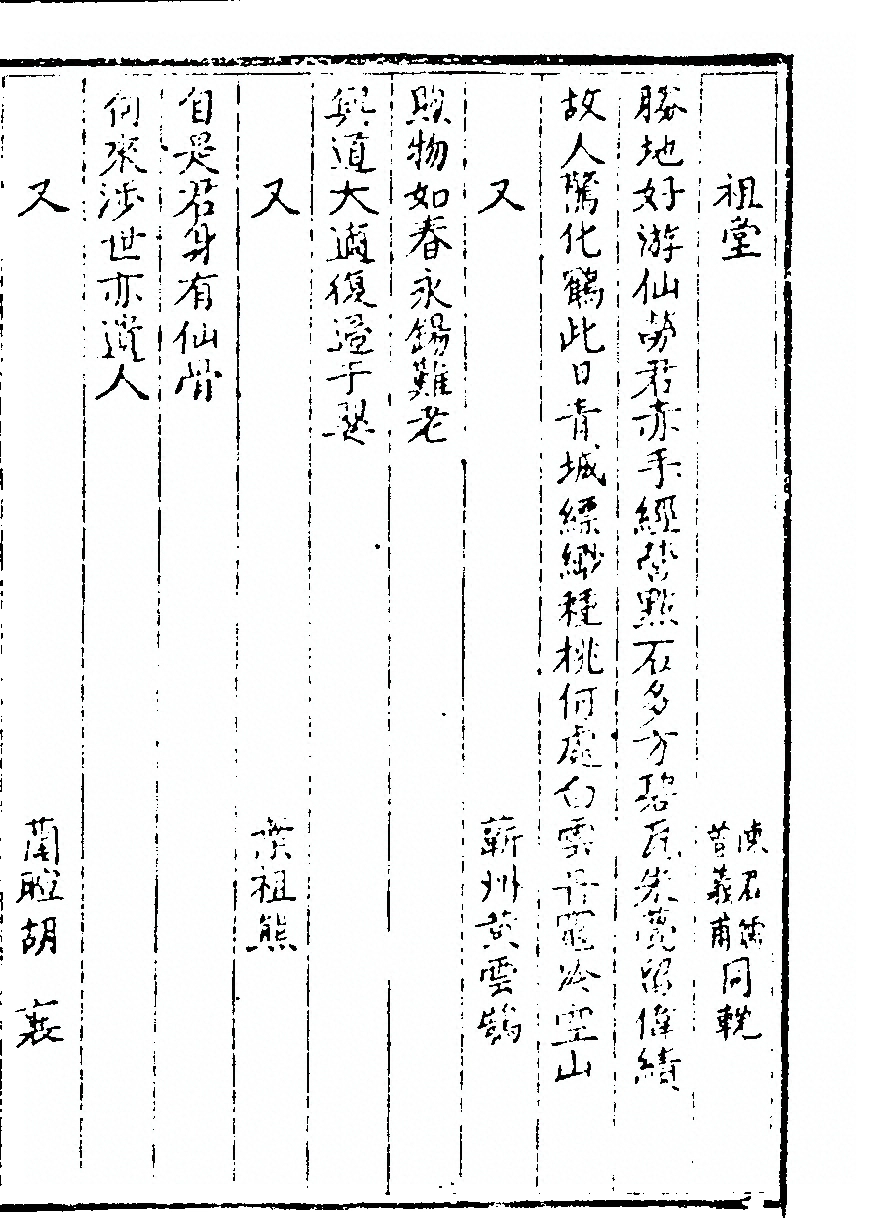 祖堂 陳君儒 曾義甫 同輓
勝地好游仙勞君赤手經營點石多方碧瓦朱甍留偉績
故人驚化鶴此日青城縹緲種桃何處白雲丹竈冷空山
又 蘄州黃雲鵠
煦物如春永錫難老
與道大適復過于
又 葉祖熊
自是君身有仙骨
何來涉世亦遺人
又 蘭 胡襄